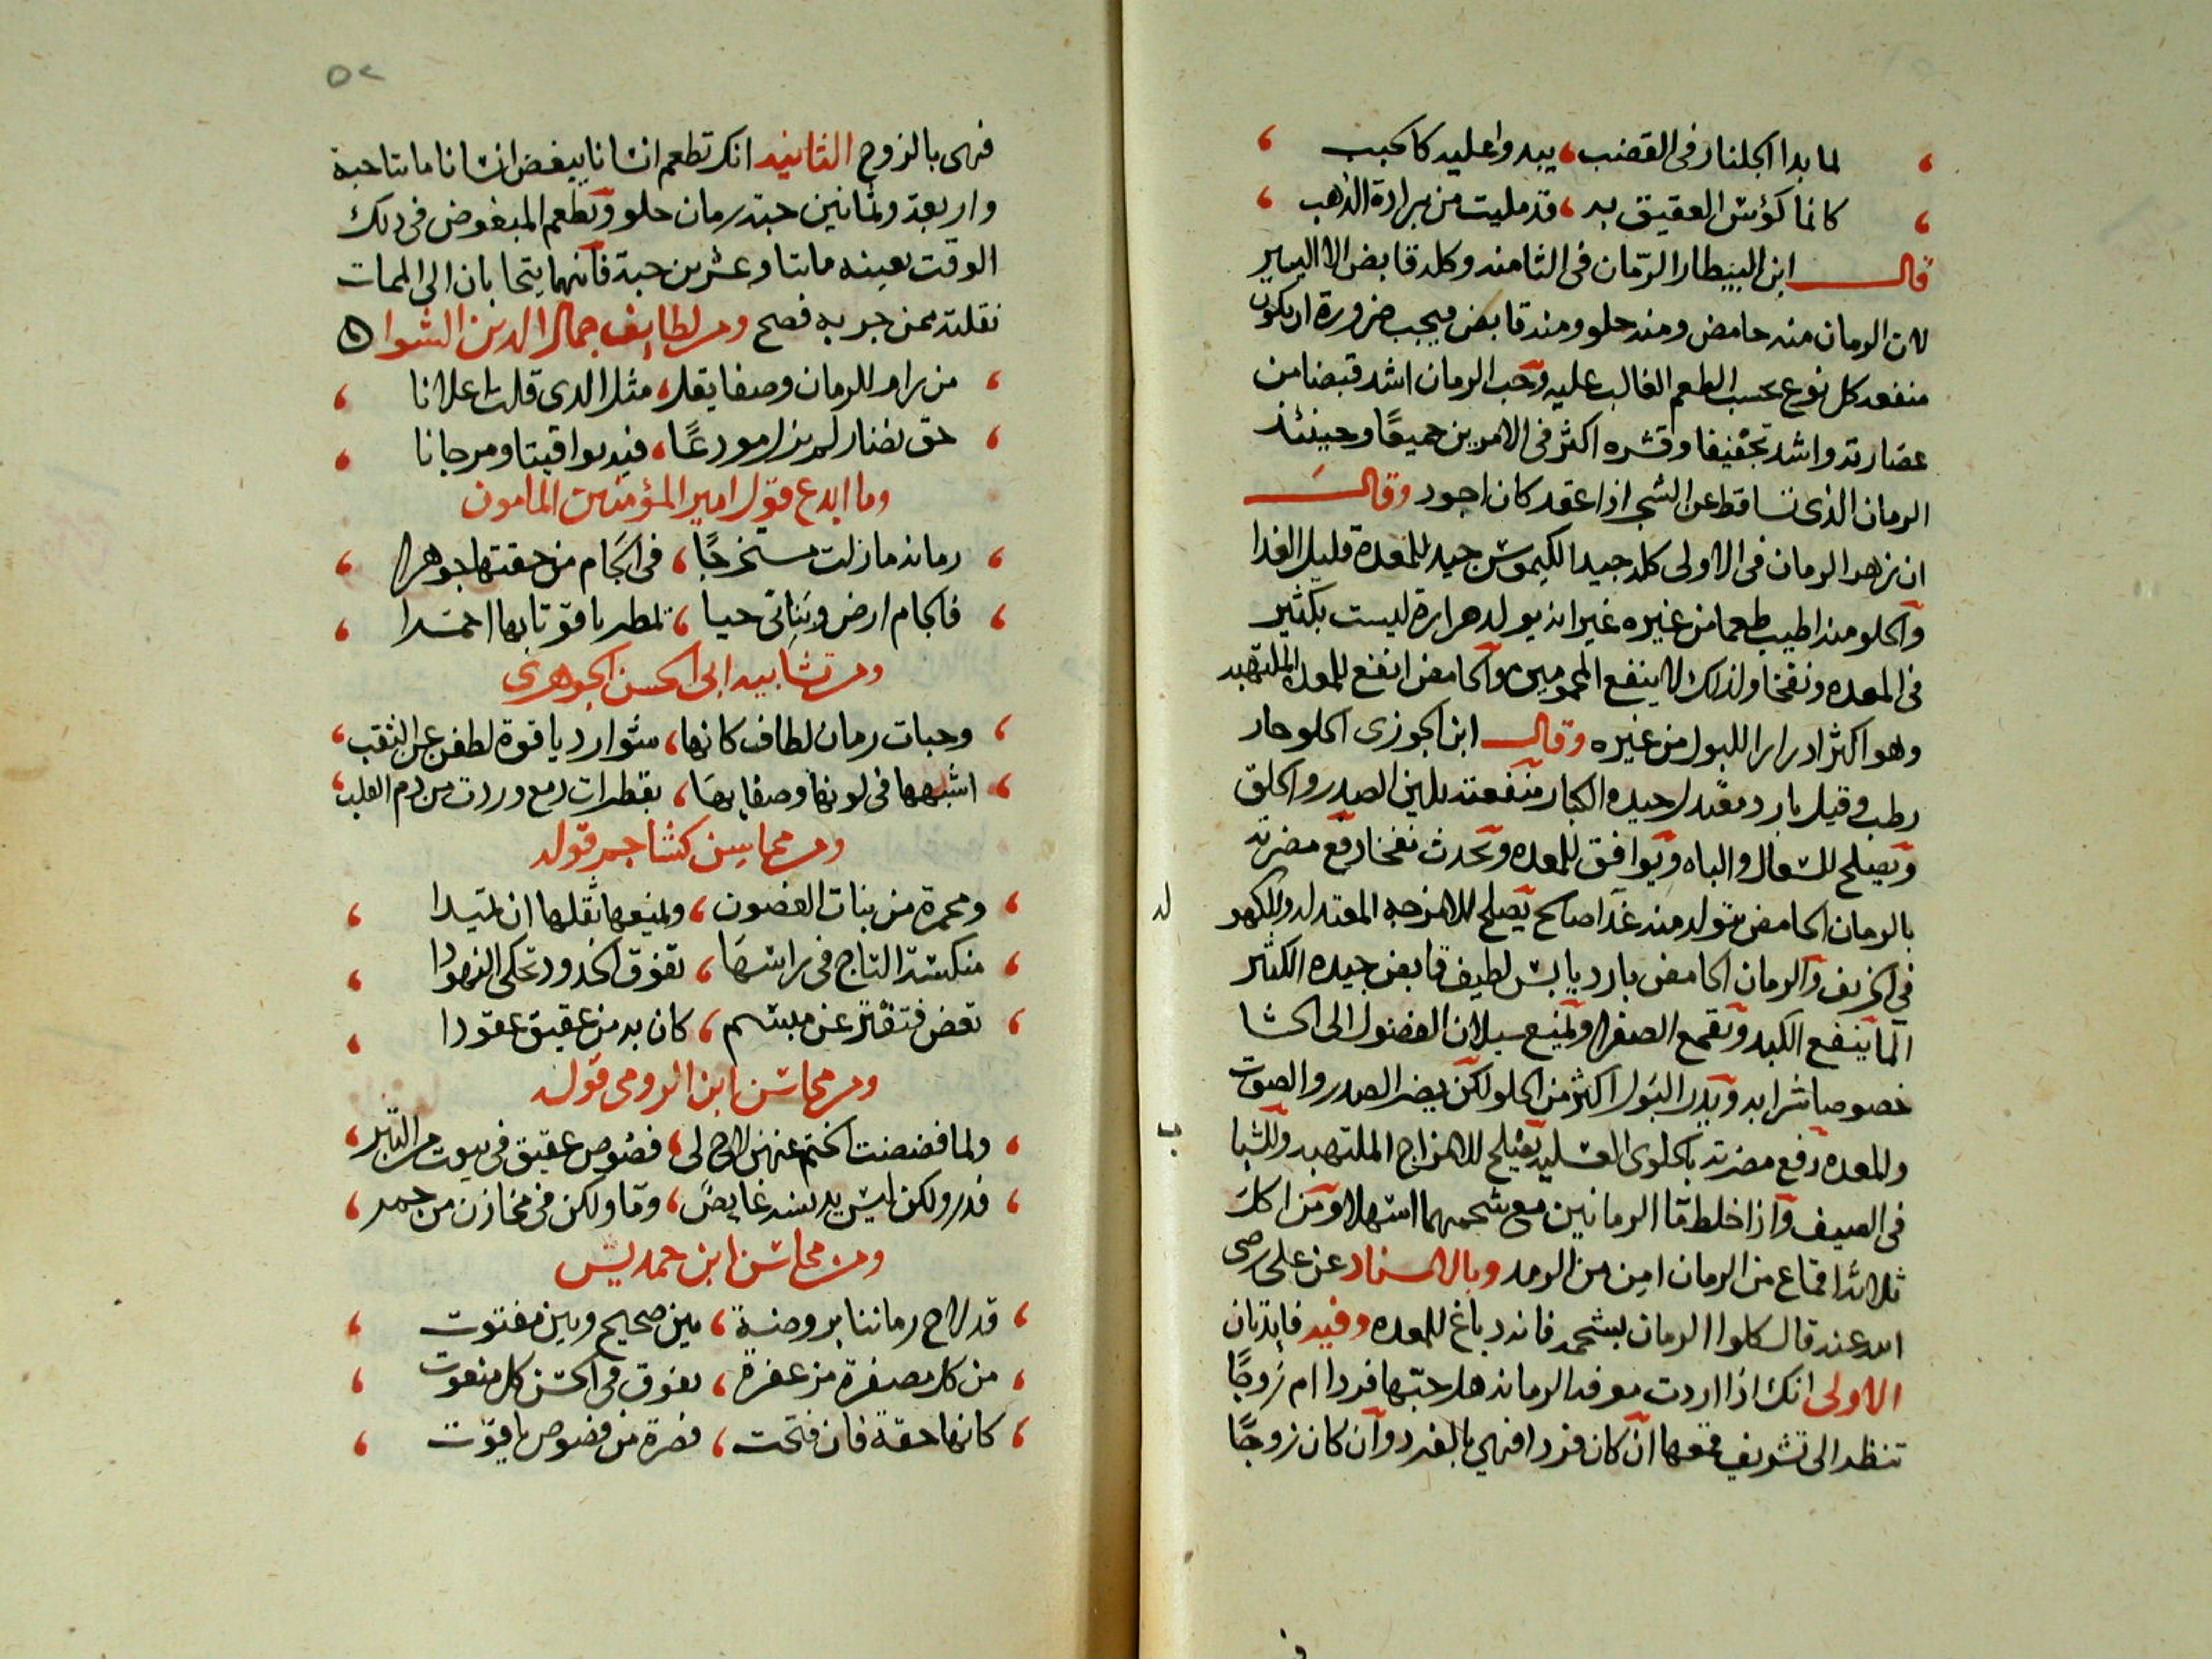 لما بدا الجلنار في القضب ، يبدو اعليه كالحبب
كانما كؤس العقيق به ، قد مليت من برادة الذهب
قال ابن البيطار الرمان في الثامنه وكله قابض الا اليسير
لان الرمان منه حامض ومنه حلو ومنه قابض فيجب ضرورة ان يكون
منفعه كل نوع بحسب الطعم الغالب عليه وحب الرمان اشد قبضا من
عصارته واشد تجفيفا وقشره اكثر في الامرين جميعًا وحينئذ
الرمان الذي تساقط عن الشجر اذا عقد كان اجود وقال
ان زهر الرمان في الاولى كله جيد الكيموس جيد للمعدة قليل الغدا
والحلو منه اطيب طعما من غيره غير انه يولد حرارة ليست بكثير
في المعده ونفخا ولذلك لا ينفع المحمومين والحامض انفع للمعده الملتهبه
وهو اكثر ادرارا للبول من غيره وقال ابن الجوزى الحلو حار
رطب وقيل بارد معتدل جيده الكبار منفعته يلين الصدر والحلق
ويصلح للسعال والباه ويوافق للمعده ويحدث نفخا دفع مضرته
بالرمان الحامض يتولد منه غدا صالح يصلح للامزجه المعتدله وللكهو
ل
في الخريف والرمان الحامض بارد يابس لطيف قابض جيده الكثير
الما ينفع الكبد ويقمع الصفرا ويمنع سيلان الفضول الى الحشا
خصوصا شرابه ويدر البول اكثر من الحلو لكن يضر الصدر والصوت
والمعده دفع مضرته بالحلوى العسليه يصلح للامزاج الملتهبه وللشبا
ب
في الصيف واذا خلط ما الرمانين مع شحمهما اسهلا ومن اكل
ثلاثة اقماع من الرمان امن من الرمد وبالاسناد عن على رضى
الله عنه قال كلوا الرمان بشحمه فانه دباغ للمعده وفيه فايدتان
الاولى انك اذا اردت معرفه الرمانه هل حبها فردا ام زوجًا
تنظر الى تشريف قمعها ان كان فردا فهي بالفرد وان كان زوجًا
٥٢
فهى بالزوج الثانيه انك تطعم انسانا يبغض انسانا مايتا حبة
واربعة وثمانين حبة رمان حلو وتطعم المبغوض فى دلك
الوقت بعينه مايتا وعشرين حبة فانهما يتحابان الى الممات
نقلته ممن جربه فصح ومن لطايف جمال الدين الشوا
من رام للرمان وصفا يقل ، مثل الدى قلت اعلانا
حق نضار لم يزل مودعًا ، فيه يواقيتا ومرجانا
وما ابدع قول امير المؤمنين المامون
رمانة مازلت مستخرجًا ، في الجام من حقتها جوهرا
فالجام ارض وبناتى حيا ، تمطر ياقوتا بها احمرا
ومن تشابيه ابى الحسن الجوهرى
وحبات رمان لطاف كانها ، شوارد ياقوة لطفن عن الثقب
اشبهها في لونها وصفايها ، بقطرات دمع وردت من دم القلب
ومن محاسن كشاجم قوله
ومحمرة من بنات الغصون ، ويمنعها ثقلها ان تميدا
منكسة التاج في راسها ، تفوق الخدود تحكى النهودا
تفض فتفتر عن مبسم ، كان به من عقيق عقودا
ومن محاسن ابن الرومى قوله
ولما فضضت الختم عنهن لاح لى ، فصوص عقيق في بيوت من التبر
فدر ولكن ليس يدنسه غايض ، وما ولكن في مخازن من جمر
ومن محاسن ابن حمديس
قد لاح رماننا بروضة ، بين صحيح وبين مفتوت
من كل مصفرة مزعفرة ، تفوق في الحسن كل منعوت
كانها حقة فان فتحت ، فصرة من فصوص ياقوت